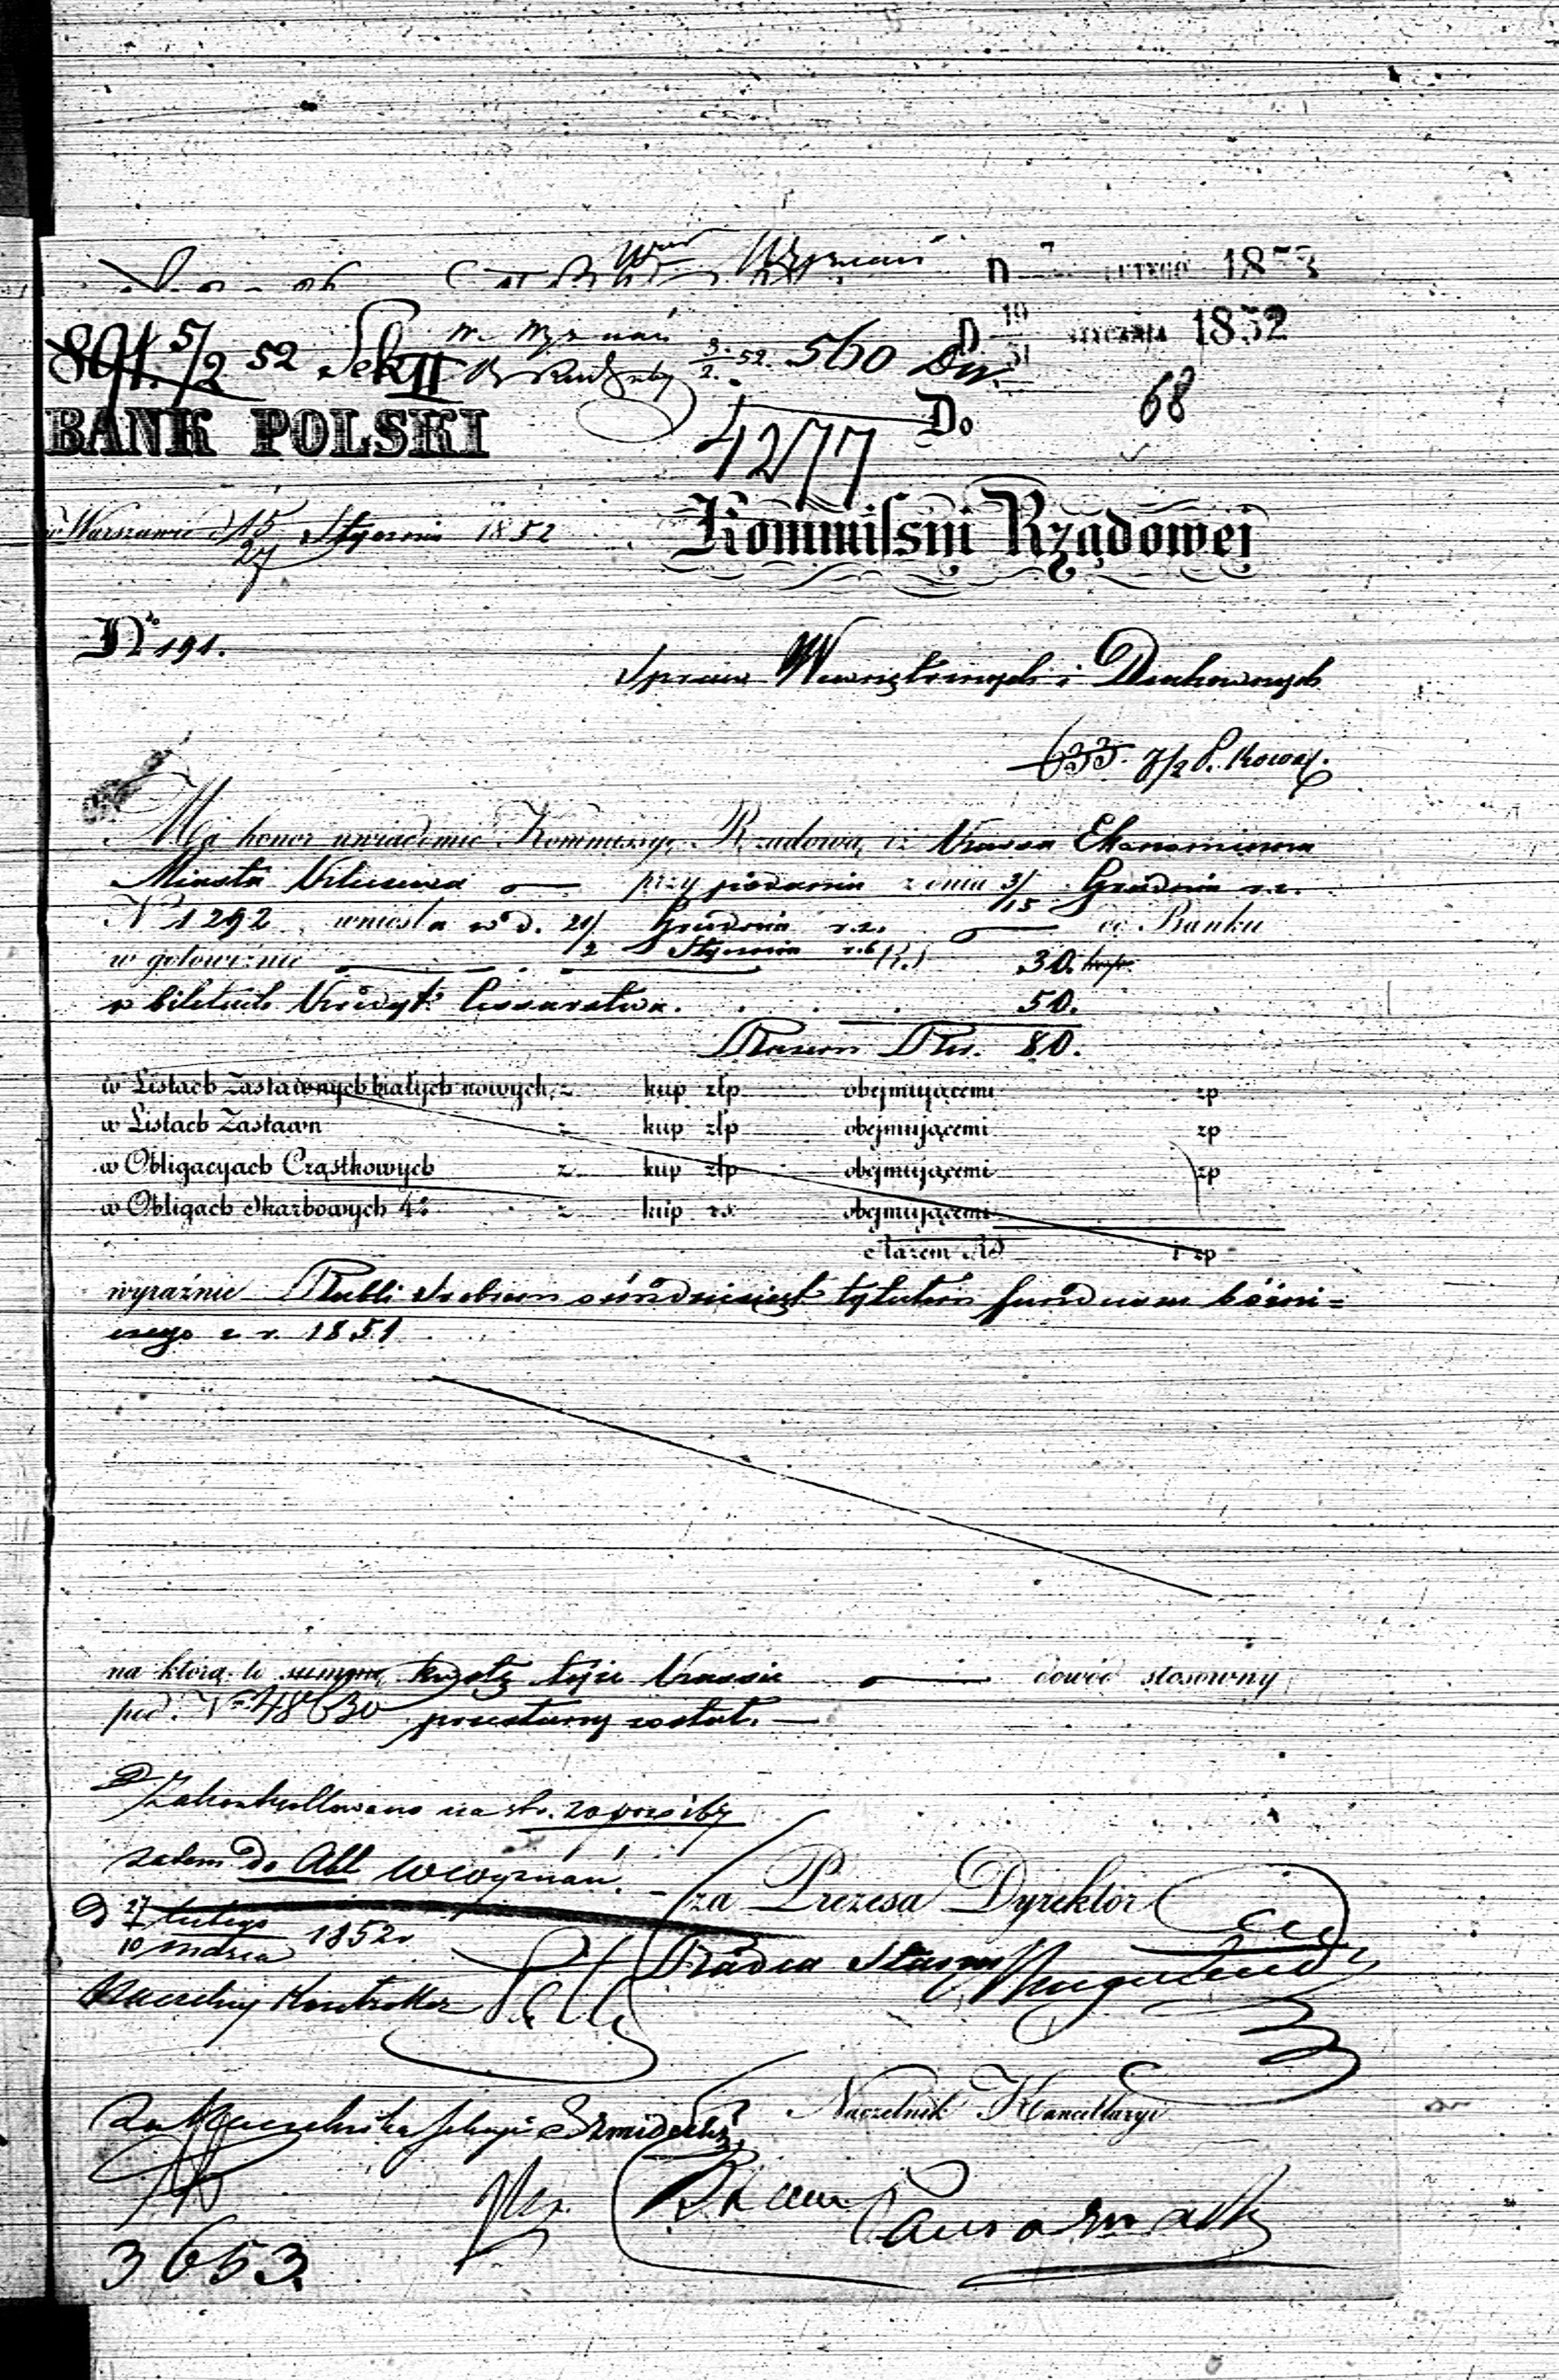 W. Wyznań
D LUTEGO 1853
D 19/31 STYCZNIA 1852
891. 5/2 52 Sek II W. Wyznań 3/2 52. 560 Dz.
68
BANK POLSKI
4277 Do
w Warszawie d 15/27 Stycznia 1852
Kommissyi Rządowej
No 191.
Spraw Wewnętrznych i Duchownych
633. 7/2 P. Kowal.
Ma honor uwiadomić Kommissyę Rządową, iż Kassa Ekonomiczna
Miasta przy podaniu z dnia 3/15 Grudnia r.z.
N 1292 wniosła w d. 21/2 Grudnia r.z. Stycznia r.b. do Banku
w gotowiźnie Rs 30. kop.
w biletach Kredyt. Cesarstwa. 50.
Razem Rs. 80.
w Listach Zastawnych białych nowych, z kup złp obejmującemi zp
w Listach Zastawn z kup złp obejmującemi zp
w Obligacyach Cząstkowych z kup złp obejmującemi zp
w Obligach Skarbowych 4% z kup rs. obejmującemi
Razem RS i zp
wyraźnie Rubli srebrem ośmdziesiąt tytułem funduszu bóżni=
czego z r. 1851
na którą to summę, kwotę tejże Kassie dowód stosowny
pod N 48630 przesłany został.
Zakontrollowano na str. 20 poz
zatem do Akt W Wyznań.
D 27 lutego/10 marca 1852 r
za Prezesa Dyrektor
Radca Stanu
Naczelny Kontroller
Za Naczelnika Sekcyi
Naczelnik Kancellaryi
3653.